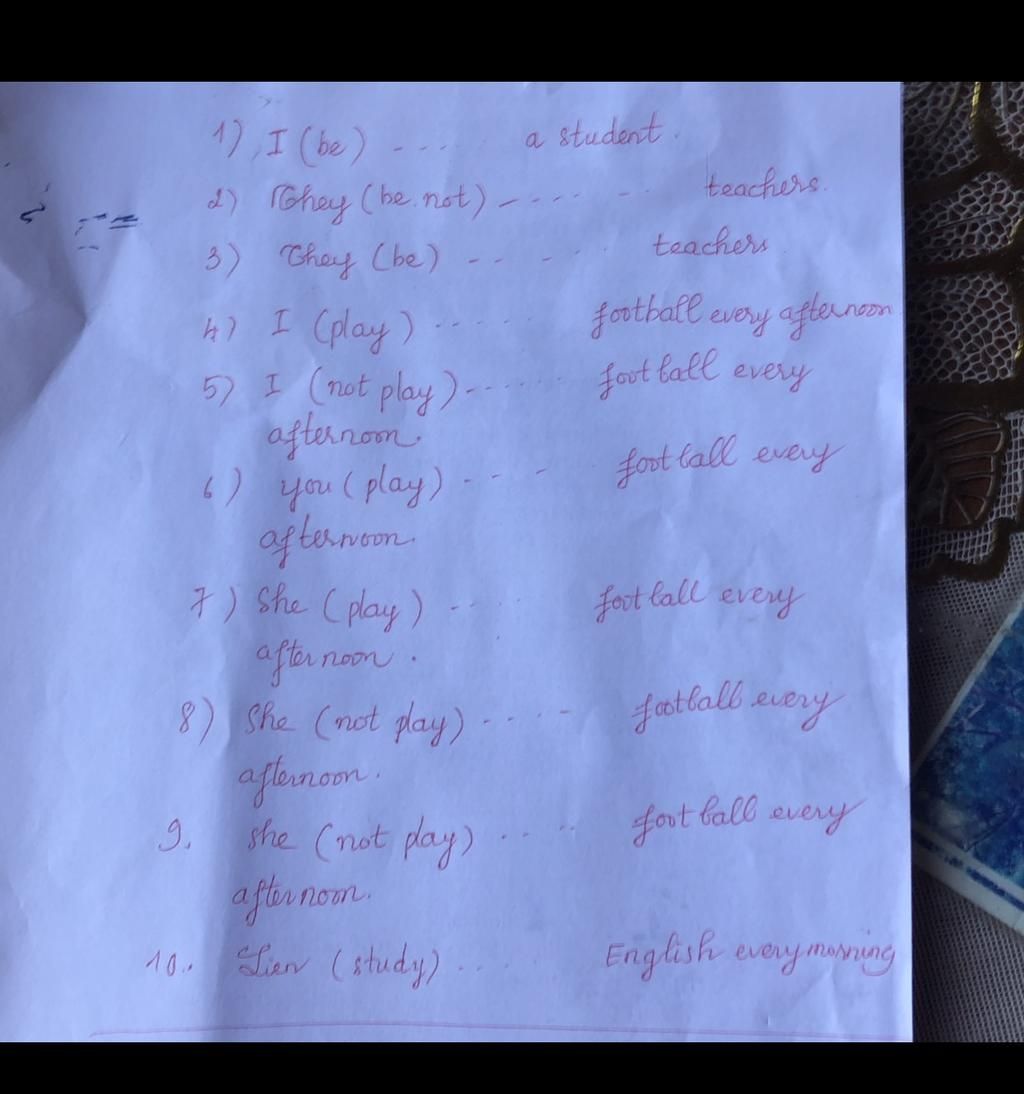 1) I (be) ---- a student.
2) They (be not) ----- -- teachers.
3) They (be) -- - -- teachers
4) I (play) ------ football every afternoon
5) I (not play) ------ football every
afternoon.
6) you (play) - - - football every
afternoon.
7) She (play) -- -- football every
afternoon.
8) She (not play) ---- - football every
afternoon.
9. she (not play) -- -- football every
afternoon.
10.. Lien (study) --- English every morning